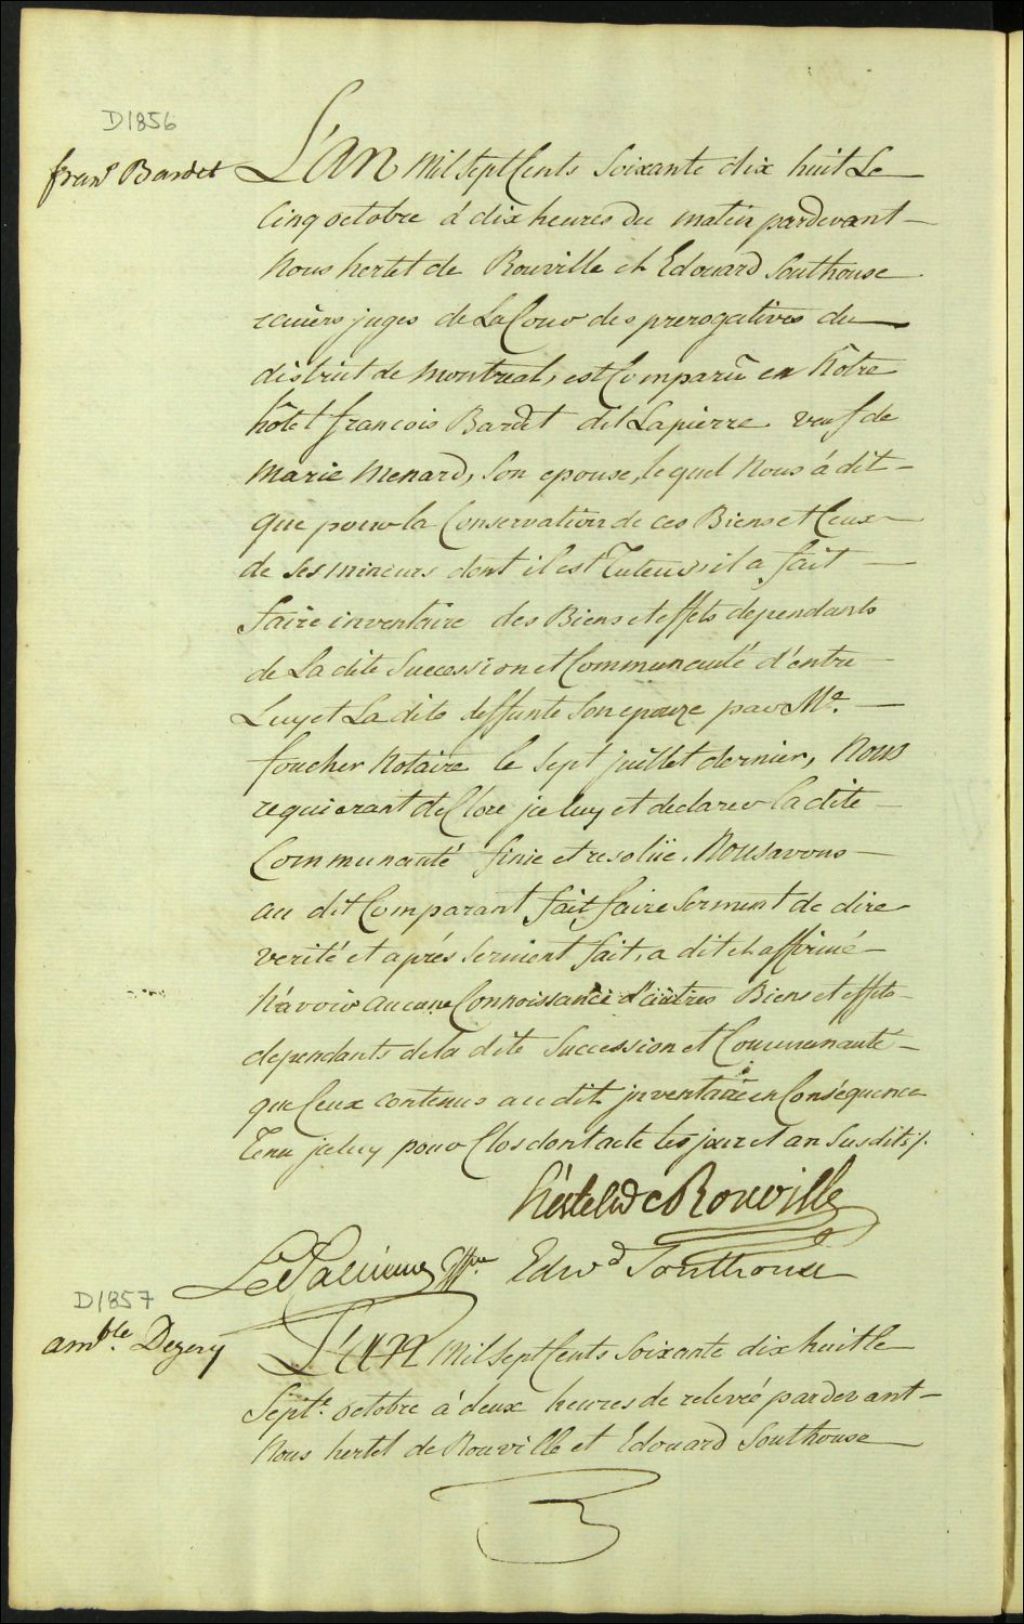 D1856
fran.s Bardet
L'An Mil Sept Cents Soixante dix huit Le
Cinq octobre à dix heures du matin pardevant
Nous hertel de Rouville et Edouard Southouse
ecuiers juges de La Cour des prerogatives du
district de Montreal, est Comparû en Nôtre
hôtel francois Bardet dit Lapierre veuf de
Marie Menard, Son epouse, lequel Nous à dit
que pour la Conservation de ces Biens et Ceux
de Ses mineurs dont il est Tuteur il a fait
faire inventaire des Biens et effets dependants
de La dite Succession et Communauté d'entre
Luy et La dite deffunte Son epouze par M.e
foucher Notaire le Sept juillet dernier, Nous
requierant de Clore jceluy et declarer La dite
Communauté finie et resolüe. Nous avons
au dit Comparant fait faire Serment de dire
verité et aprés Serment fait, a dit et affirmé
N'avoir aucune Connoissance d'autres Biens et effets
dependants de la dite Succession et Communauté
que Ceux contenus au dit jnventaire en Conséquence
Tenu jceluy pour Clos dont acte les jour et an Susdits ./.
hertel de Rouville
Edw.d Southouse
D1857
am.ble Dezery
L'An Mil Sept Cents Soixante dix huit le
Sept.e octobre à deux heures de relevée pardevant
Nous hertel de Rouville et Edouard Southouse